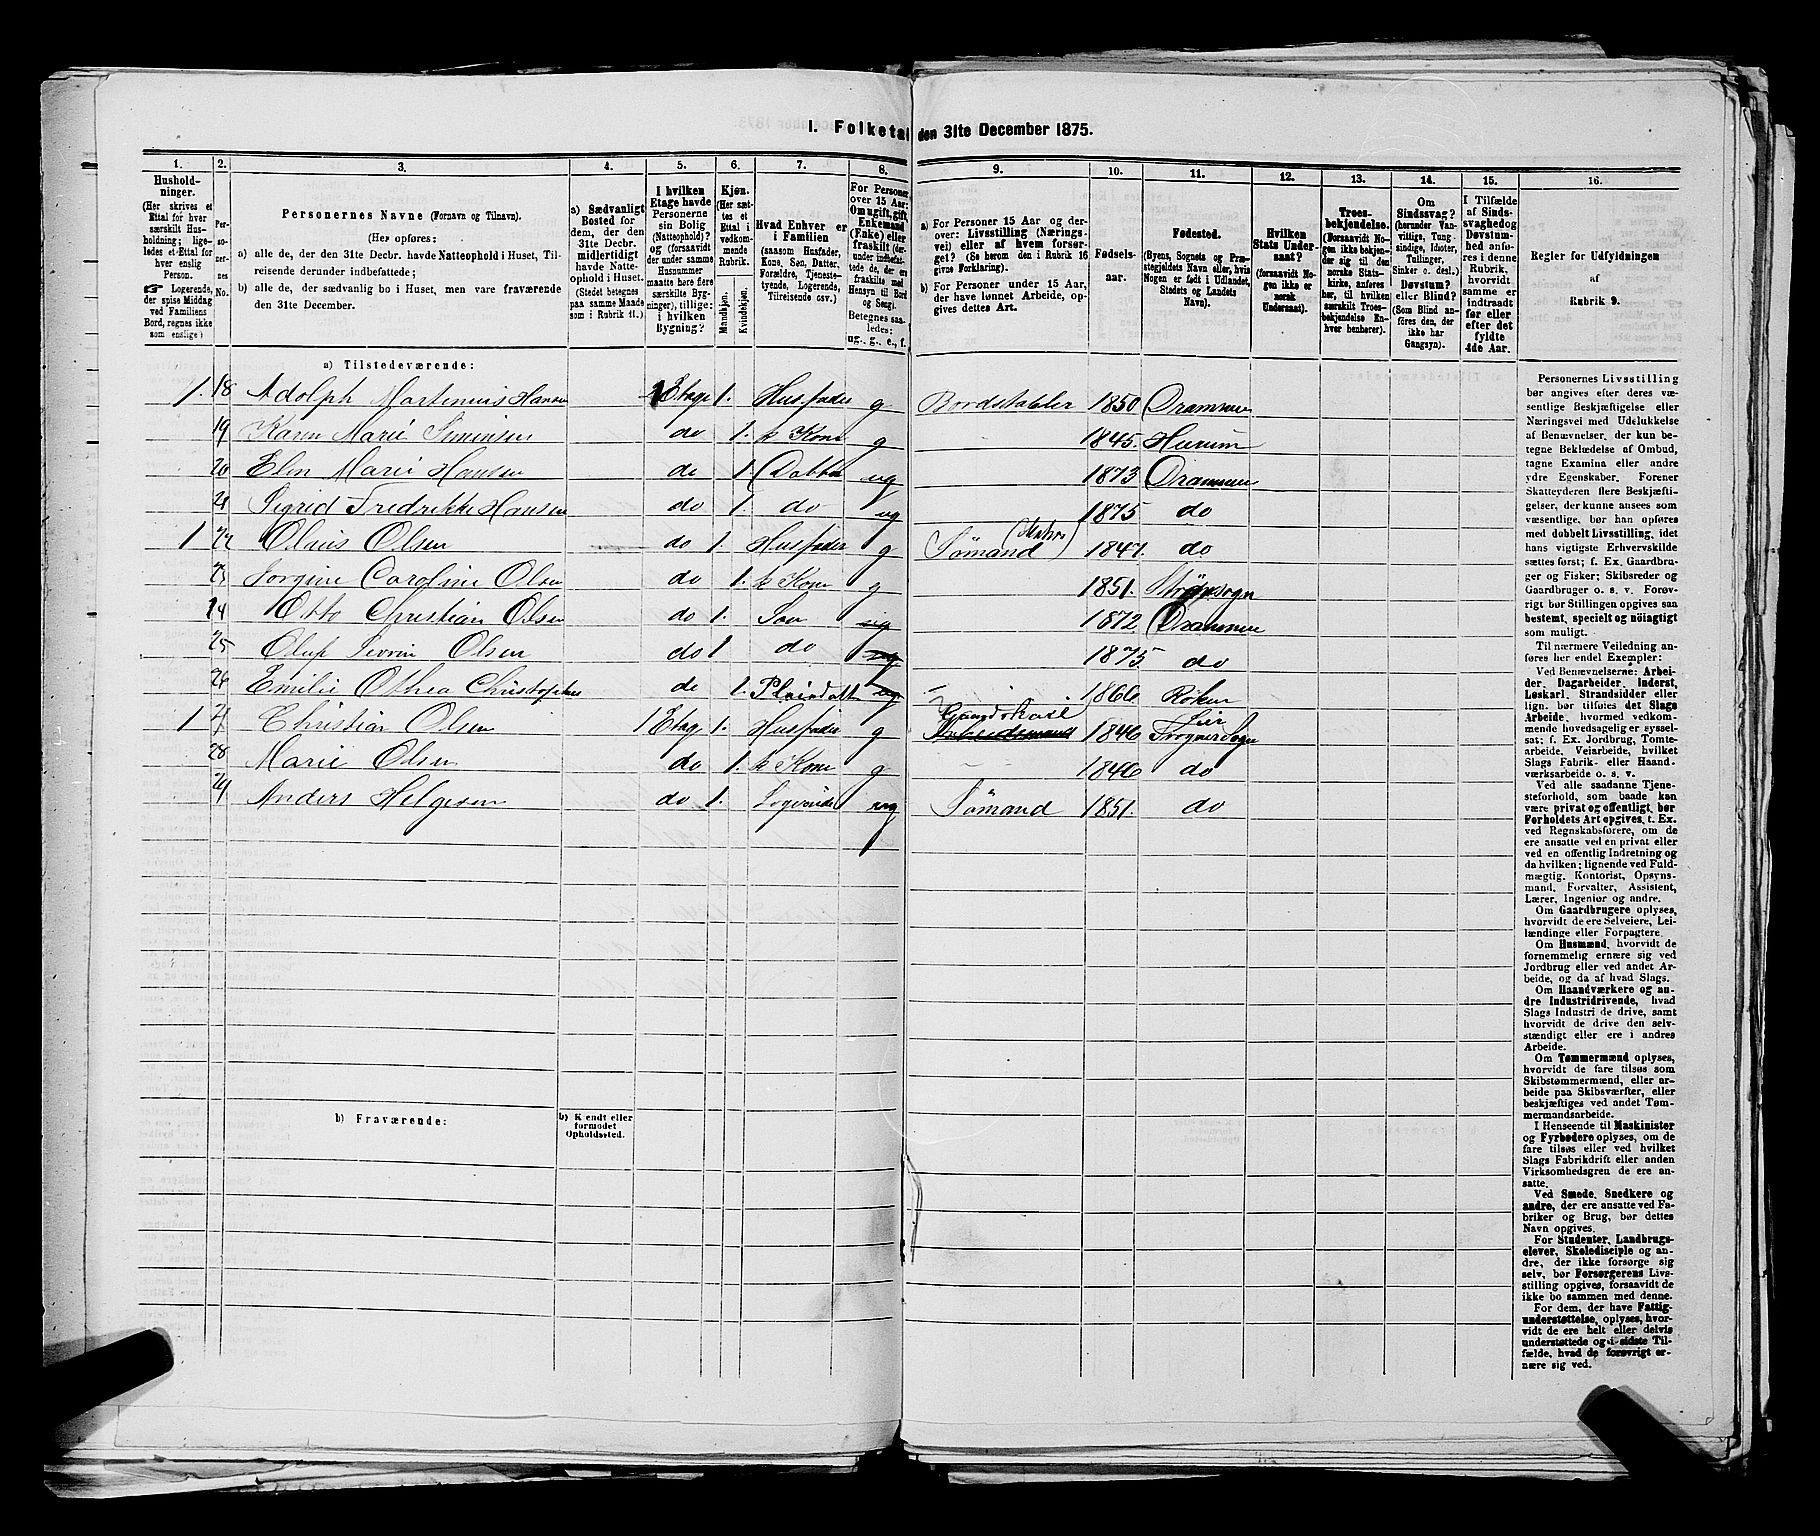 I. Folketal den 31te December 1875.
1. 2. 3. 4. 5. 6. 7. 8. 9. 10. 11. 12. 13. 14. 15. 16.
Husholdninger.
(Her skrives et
Ettal for hver
særskilt Husholdning;
ligeledes et Ettal for
hver enslig
Person.
☛ Logerende,
der spise Middag
ved Familiens
Bord, regnes ikke
som enslige.)
Personernes No.
Personernes Navne (Fornavn og Tilnavn).
(Her opføres:
a) alle de, der den 31te Decbr. havde Natteophold i Huset, Tilreisende derunder indbefattede;
b) alle de, der sædvanlig bo i Huset, men vare fraværende
den 31te December.
a) Sædvanligt
Bosted for
dem, der den
31te Decbr.
midlertidigt
havde Natteophold i Huset.
(Stedet betegnes
paa samme Maade
som i Rubrik 11.)
I hvilken
Etage havde
Personerne
sin Bolig
(Natteophold)?
og (forsaavidt
der under samme
Husnummer
maatte høre flere
særskilte Bygninger), tillige:
i hvilken
Bygning?
Kjøn.
(Her sættes et
Ettal i
vedkommende
Rubrik.
Mandkjøn.
Kvindekjøn.
Hvad Enhver er
i Familien
(saasom Husfader,
Kone, Søn, Datter,
Forældre, Tjenestetyende, Logerende,
Tilreisende osv.)
For Personer
over 15 Aar:
Om ugift, gift,
Enkemand
(Enke) eller
fraskilt
Betegnes saaledes:
ug., g., e., f.
a) For Personer 15 Aar og derover: Livsstilling (Næringsvei) eller af hvem forsørget? (Se herom den i Rubrik 16
givne Forklaring).
b) For Personer under 15 Aar,
der have lønnet Arbeide, opgives dettes Art.
Fødselsaar.
Fødested.
(Byens, Sognets og Præstegjeldets Navn eller, hvis
Nogen er født i Udlandet,
Stedets og Landets
Navn).
Hvilken
Stats Undersaat?
(forsaavidt Nogen ikke er
norsk
Undersaat).
Troesbekjendelse.
(Forsaavidt Nogen ikke bekjender sig til den
norske Statskirke, anføres
her, til hvilken
særskilt Troesbekjendelse Enhver henhører).
Om
Sindssvag?
(herunder Vanvittige, Tungsindige, Idioter,
Tullinger,
Sinker o. desl.)
Døvstum?
eller Blind?
(Som Blind anføres den, der
ikke har
Gangsyn).
I Tilfælde
af Sindssvaghed og
Døvstumhed anføres i denne
Rubrik,
hvorvidt
samme er
indtraadt
før eller
efter det
fyldte
4de Aar.
Regler for Udfyldningen
af
Rubrik 9.
a) Tilstedeværende:
1. 18 Adolph Martenius Hansen Etage 1. Husfader g Bordstabler 1850 Drammen
19 Karen Marie Simensen do 1. Kone g 1845. Hurum
20 Elen Marie Hansen do 1. Datter ug 1873 Drammen
21 Sigrid Fredrikke Hansen do 1. do ug 1875 do
1 22 Olaus Olsen do 1. Husfader g Sømand 1847. do
23 Jørgine Caroline Olsen do 1. Kone g 1851.
24 Otto Christian Olsen do 1. Søn ug 1872 Drammen
25 Oluf Severin Olsen do 1 do ug 1875. do
26 Emilie Othea do 1. ug 1866 Røken
1 27 Christian Olsen 1 Etage 1. Husfader g Arbeidsmand 1846 Lier
28 Marie Olsen do 1. Kone g 1846 do
29 Anders Helgesen do 1. Logerende ug Sømand 1851. do
b) Fraværende:
b) Kjendt eller
formodet
Opholdssted.
Personernes Livsstilling
bør angives efter deres væsentlige Beskjæftigelse eller
Næringsvei med Udelukkelse
af Benævnelser, der kun betegne Beklædelse af Ombud,
tagne Examina eller andre
ydre Egenskaber. Forener
Skatteyderen flere Beskjæftigelser, der kunne ansees som
væsentlige, bør han opføres
med dobbelt Livsstilling, idet
hans vigtigste Erhvervskilde
sættes først; f. Ex. Gaardbruger og Fisker; Skibsreder og
Gaardbruger o. s. v. Forøvrigt bør Stillingen opgives saa
bestemt, specielt og nöiagtigt
som muligt.
Til nærmere Veiledning anføres her endel Exempler:
Ved Benævnelserne: Arbeider, Dagarbeider, Inderst,
Løskarl, Strandsidder eller
lign. bør tilføies det Slags
Arbeide, hvormed vedkommende hovedsagelig er sysselsat; f. Ex. Jordbrug, Tomtearbeide, Veiarbeide, hvilket
Slags Fabrik- eller Haandværksarbeide o. s. v.
Ved alle saadanne Tjenesteforhold, som baade kan
være privat og offentligt, bør
Forholdets Art opgives, t. Ex.
ved Regnskabsførere, om de
ere ansatte ved en privat eller
ved en offentlig Indretning og
da hvilken; lignende ved Fuldmægtig, Kontorist, Opsynsmand, Forvalter, Assistent,
Lærer, Ingeniør og andre.
Om Gaardbrugere oplyses,
hvorvidt de ere Selveiere, Leilændinge eller Forpagtere.
Om Husmænd, hvorvidt de
fornemmelig ernære sig ved
Jordbrug eller ved andet Arbeide, og da af hvad Slags.
Om Haandværkere og andre Industridrivende, hvad
Slags Industri de drive, samt
hvorvidt de drive den selvstændigt eller ere i andres
Arbeide.
Om Tømmermænd oplyses,
hvorvidt de fare tilsøs som
Skibstømmermænd, eller arbeide paa Skibsværfter, eller
beskjæftiges ved andet Tømmermandsarbeide.
I Henseende til Maskinister
og Fyrbødere oplyses, om de
fare tilsøs eller ved hvilket
Slags Fabrikdrift eller anden
Virksomhedsgren de ere ansatte.
Ved Smede, Snedkere og
andre, der ere ansatte ved Fabriker og Brug, bør dettes
Navn opgives.
For Studenter, Landbrugselever, Skoledisciple og andre, der ikke forsørge sig
selv, bør Forsørgerens Livsstilling opgives, forsaavidt de
ikke bo sammen med denne.
For dem, der have Fattigunderstøttelse, oplyses, hvorvidt de ere helt eller delvis
understøttede og i sidste Tilfælde, hvad de forøvrigt ernære sig ved.